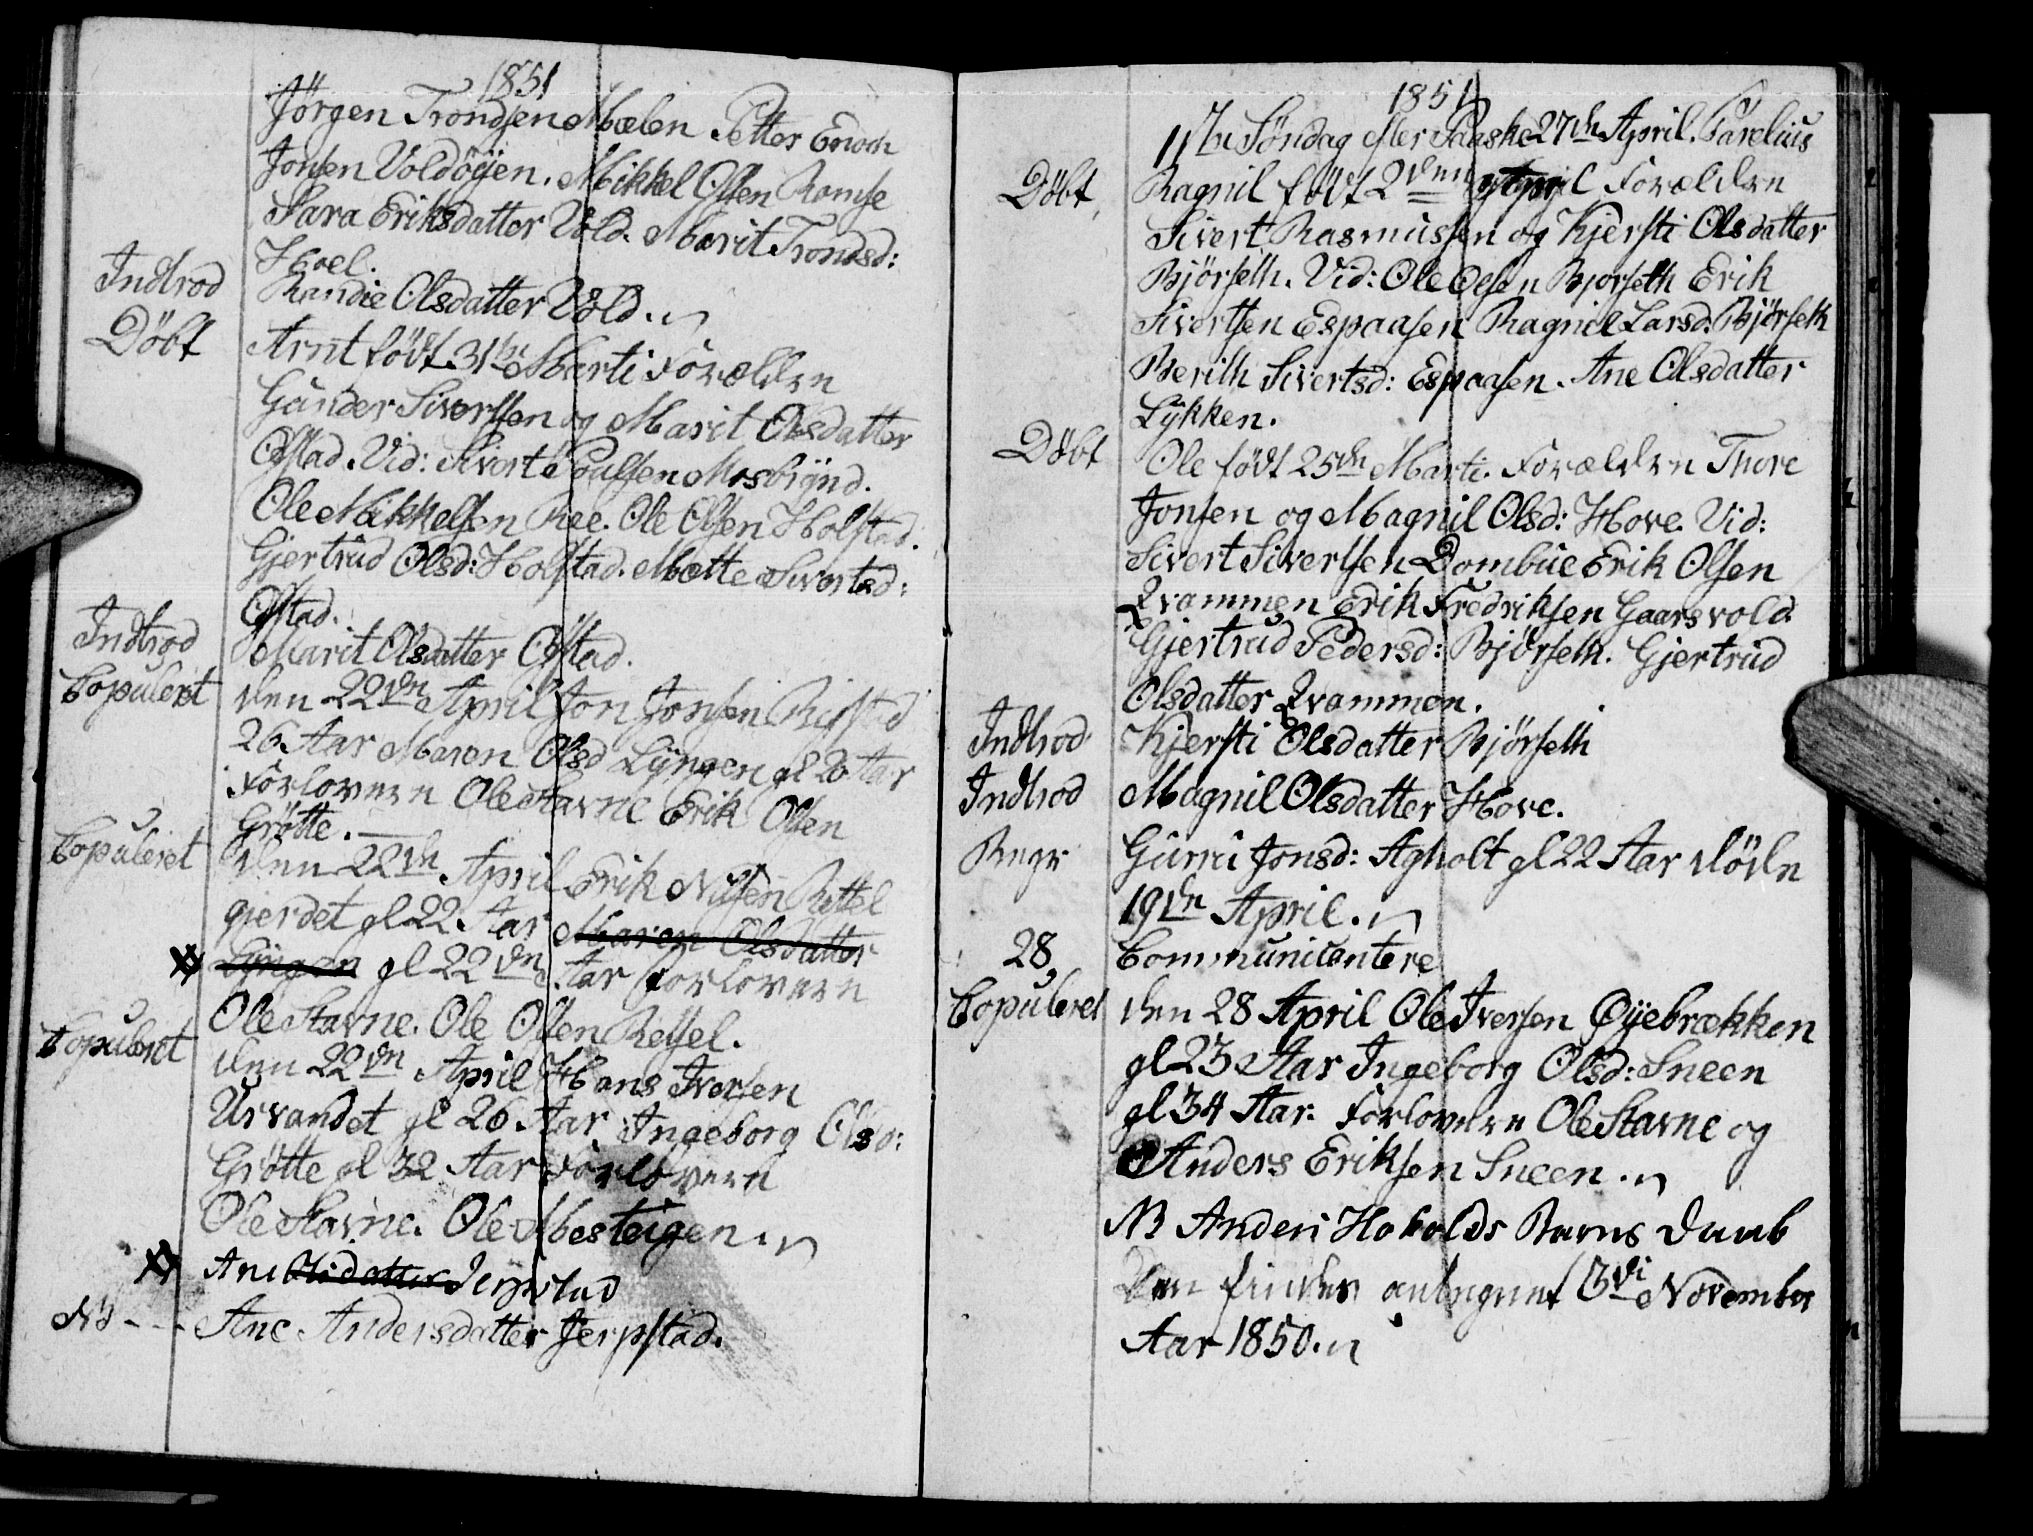 1851
Jørgen Trondsen Mælen Petter Enoch
Jonsen Voldøÿen. Mikkel Olsen Ramse
Sara Eriksdatter Vold. Marit Trondsd:
Hoel.
Indtrod Randie Olsdatter Vold.
Døbt Arnt født 31te Marti Forældre
Gunder Sivertsen og Marit Olsdatter
Ofstad. Vid: Sivert Poulsen Mosbrÿnd.
Ole Mikkelsen Ree. Ole Olsen Holstad.
Gjertrud Olsd: Holstad. Mette Sivertsd:
Ofstad.
Indtrod Marit Olsdatter Ofstad.
Copuleret den 22de April Jon Jonsen Ristad
26 Aar Maren Olsd Lÿngen gl 20 Aar
Forlovere Ole Stavne Erik Olsen
Grøtte.
Copuleret den 22de April Erik Nilsen Rettel
gjerdet gl 22 Aar Maren Olsdatter
Lÿngen gl 22de Aar Forlovere
Ole Stavne. Ole Olsen
Copuleret den 22de April Hans Iversen
Urvandet gl 26 Aar Ingeborg Olsd:
Grøtte gl 32 Aar Forlovere
Ole Stavne. Ole Mesteigen
Ane Olsdatter Jerpstad
NB - - - Ane Andersdatter Jerpstad.
1851
1ste Søndag efter Paaske 27de April. Parelius
Døbt, Ragnil født 2den April Forældre
Sivert Rasmussen og Kjersti Olsdatter
Bjørseth. Vid: Ole Olsen Bjørseth Erik
Sivertsen Espaasen Ragnil Larsd: Bjørseth
Berith Sivertsd: Espaasen. Ane Olsdatter
Lÿkken.
Døbt Ole født 25de Marti. Forældre Thore
Jonsen og Magnil Olsd: Hove. Vid:
Sivert Sivertsen Dombue Erik Olsen
Qvammen Erik Fredriksen Gaarsvold
Gjertrud Pedersd: Bjørseth. Gjertrud
Olsdatter Qvammen.
Indtrod Kjersti Olsdatter Bjørseth
Indtrod Magnil Olsdatter Hove.
Begr Gurru Jonsd: Agholt gl 22 Aar døde
19de April.
28, Communicantere
Copuleret den 28 April Ole Iversen Øÿebrækken
gl 23 Aar Ingeborg Olsd: Sneen
gl 34 Aar. Forlovere Ole Stavne og
Anders Eriksen Sneen.
NB Anders Hobolds Barns Daab
findes antegnet 3di November
Aar 1850.